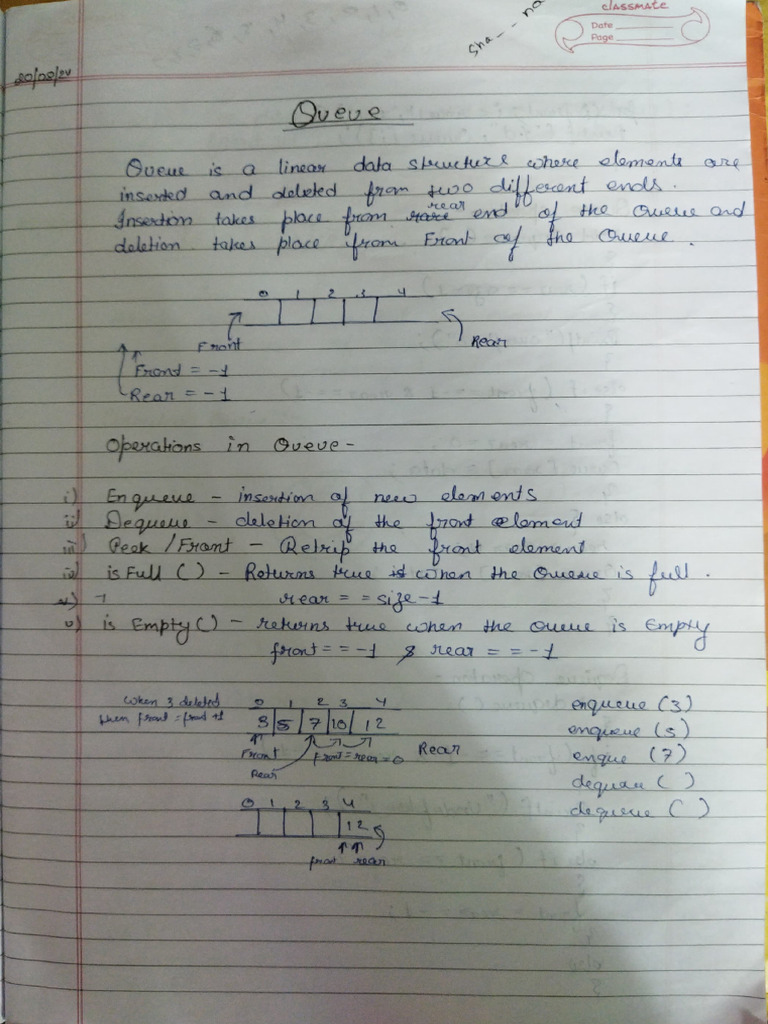 classmate
Date
Page
Sha-- na
20/08/24
Queue
Queue is a linear data structure where elements are
inserted and deleted from two different ends.
rear
Insertion takes place from end of the Queue and
deletion takes place from Front of the Queue.
0 1 2 3 4
Front Rear
Front = -1
Rear = -1
Operations in Queue -
i) Enqueue - insertion of new elements
ii) Dequeue - deletion of the front element
iii) Peek / Front - Retrip the front element
iv) is Full () - Returns true when the Queue is full.
rear = = size-1
v) is Empty () - returns true when the Queue is Empty
front = = -1 & rear = = -1
when 3 deleted
then front = front +1
0 1 2 3 4
3 5 7 10 12
Front Rear front = rear = 0 Rear
enqueue (3)
enqueue (5)
enque (7)
dequeue ( )
dequeue ( )
0 1 2 3 4
12
front rear